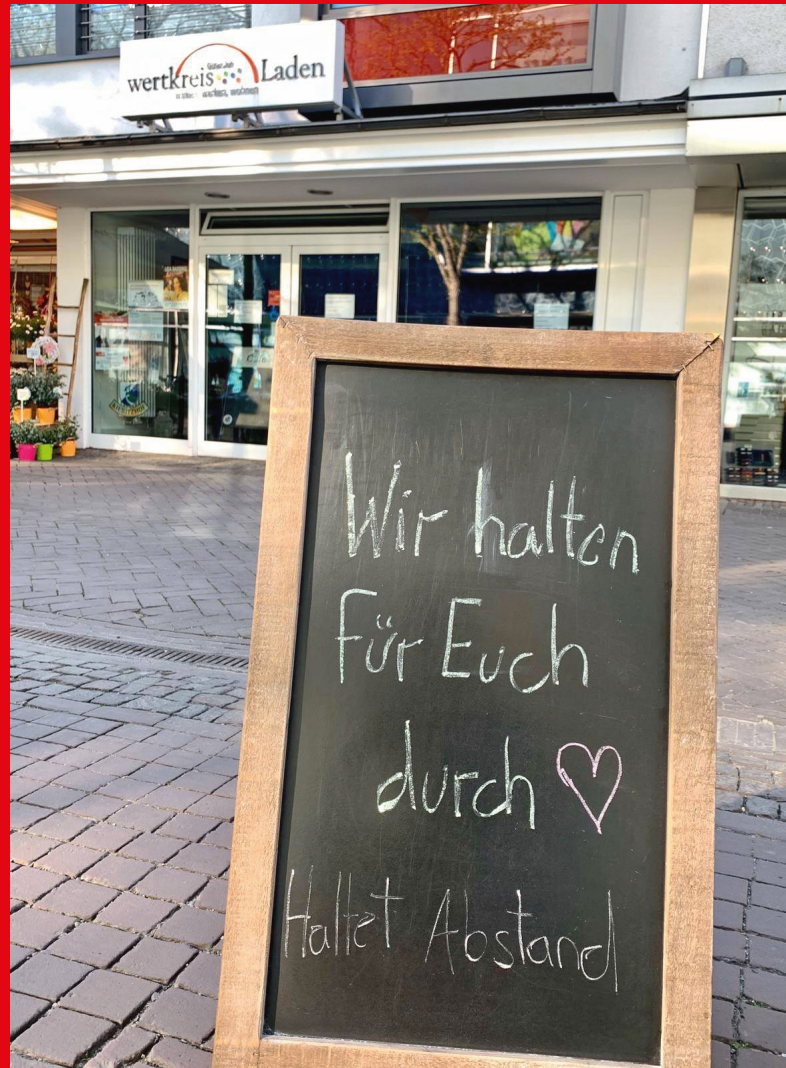 wertkreis Laden
Wir halten
für Euch
durch
Haltet Abstand